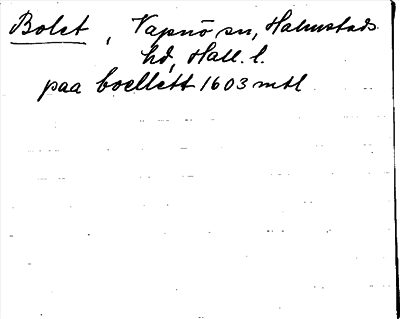 Bolet, Vapnö sn, Halmstads
hd, Hall. l.
paa boellett 1603 mtl